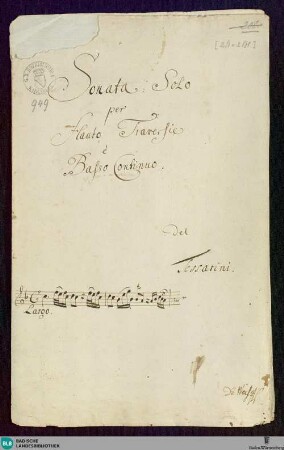 949
Sonata Solo
per
Flauto Traversie
è
Basso Continuo.
del
Tessarini.
Largo.
BLB
BADISCHE
LANDESBIBLIOTHEK
Baden-Württemberg